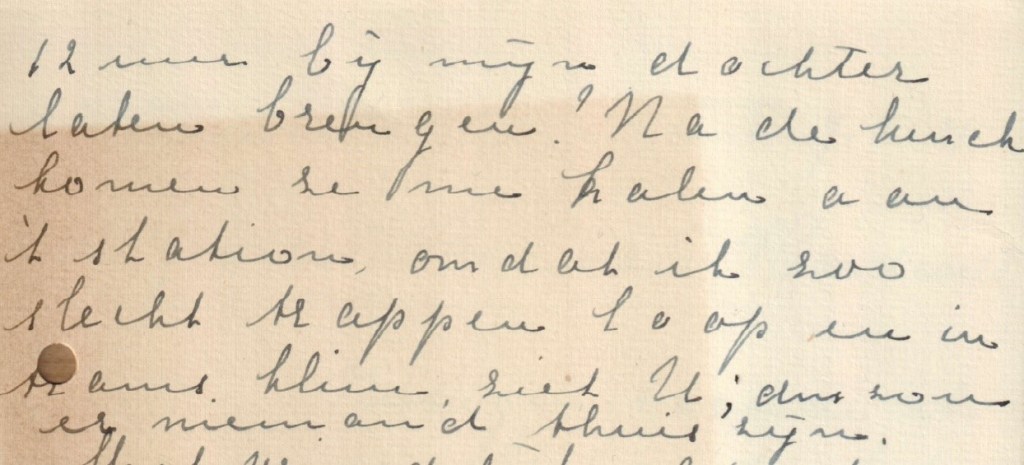 12 uur bij mijn dochter
laten brengen? Na de lunch
komen ze me halen aan
't station, omdat ik zoo
slecht trappen loop en in
trams klim, ziet U; dus zou
er niemand thuis zijn.